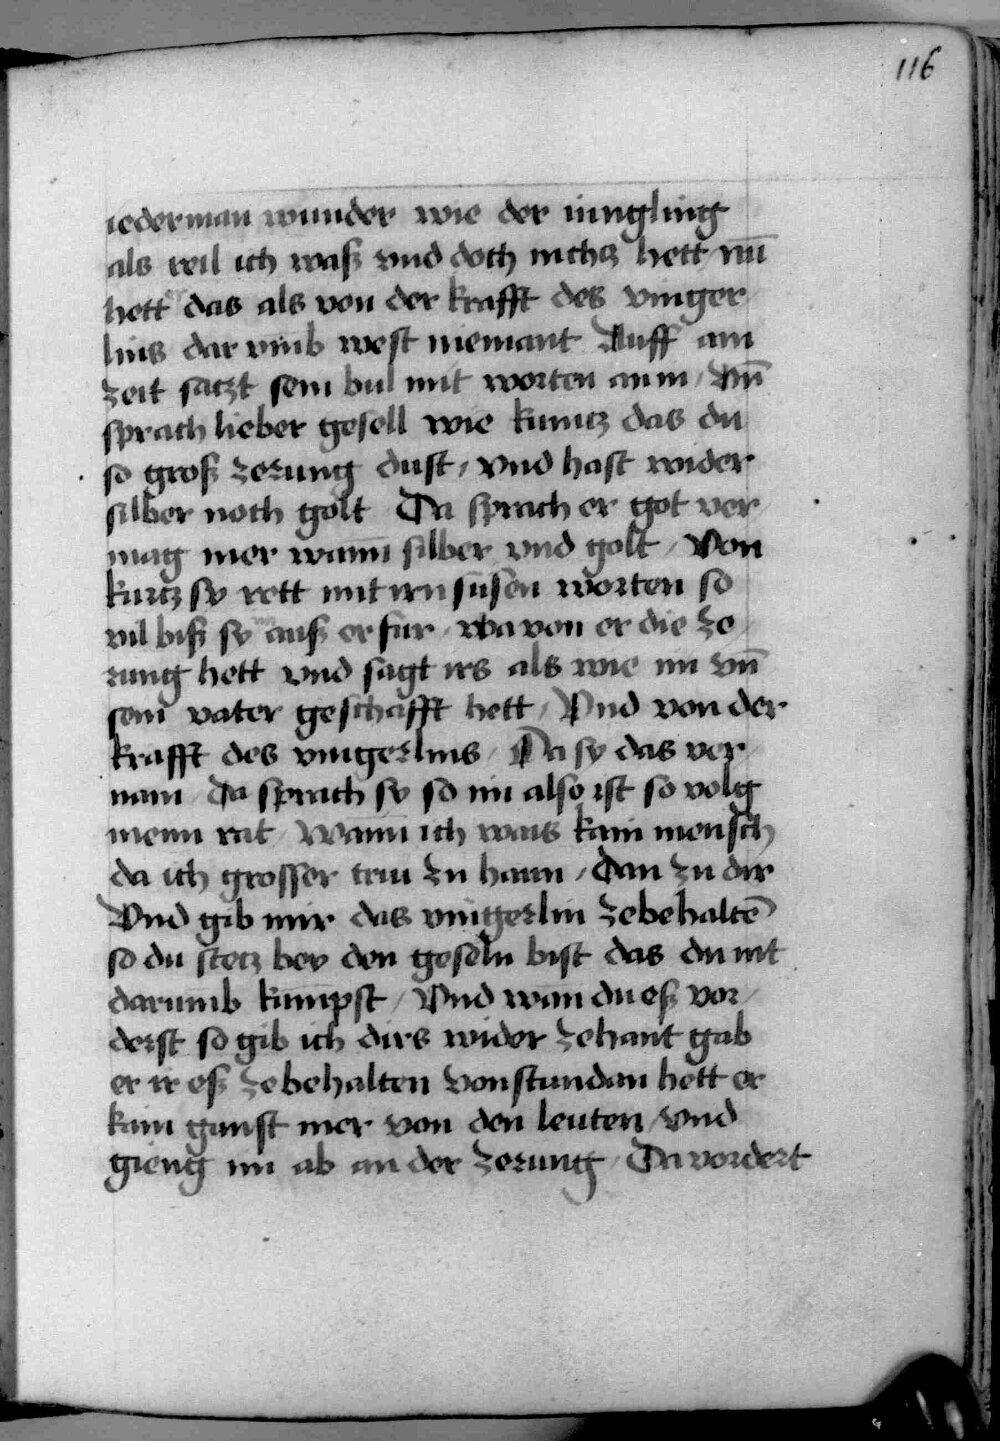 116
iederman wunder wie der iungling
als veil ich waß vnd doch nichs hett / nū
hett er das als von der krafft des vinger
lins dar vmb west niemant Auff ain
zeit satzt sein bul mit worten an in / Vn̄
sprach lieber gesell wie kumtz das du
so groß zerung dust / vnd hast wider
silber noch golt Da sprach er got ver
mag mer wann silber vnd golt / Von
kurtz sy rett mit irn süsen worten so
vil biß sy im auß erfur / wa von er die ze
rung hett vnd sagt irs als wie im vn̄
sein vater geschafft hett / Vnd von der
krafft des vingerlins / Da sy das ver
nam / da sprach sy so im also ist so volg
meim rat / Wann ich wais kain mensch
da ich grosser treu zu hann / dan zu dir
Vnd gib mir das vingerlin zebehaltē
so du stetz bey den geseln bist das du nit
darumb kumpst / Vnd wan du eß vor
derst so gib ich dirs wider zehant gab
er ir eß zebehalten Von stundan hett er
kain gunst mer von den leuten / vnd
gieng im ab an der zerung / Da vordert